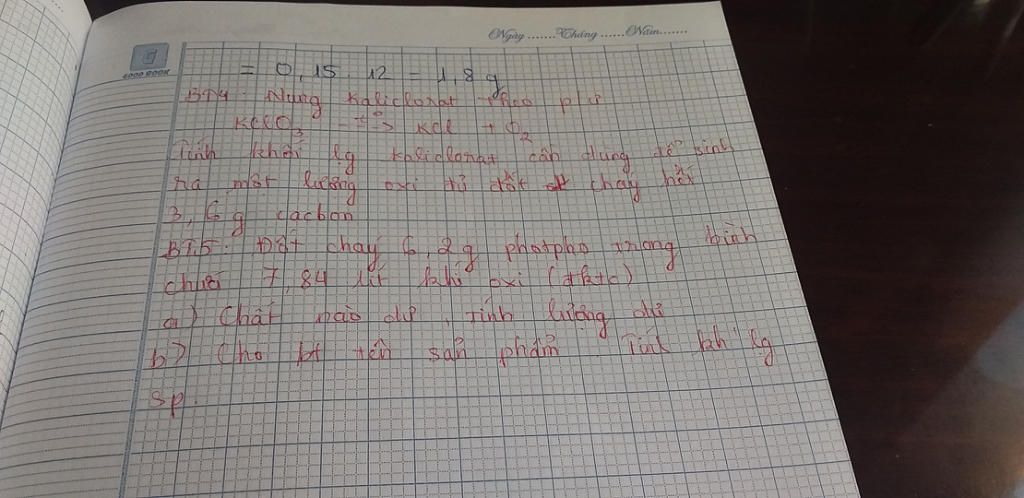 Ngày ....... Tháng ...... Năm.......
GOOD BOOK
= 0,15. 12 = 1,8 g
BT4: Nung Kaliclorat theo pư
KClO3 -t°-> KCl + O2
Tính khối lg kaliclorat cần dùng để sinh
ra một lượng oxi đủ đốt cháy hết
3,6 g cacbon
BT5: Đốt cháy 6,2g photpho trong bình
chứa 7,84 lít khí oxi (đktc)
a) Chất nào dư, tính lượng dư
b) Cho bt tên sản phẩm Tính kh lg
sp.